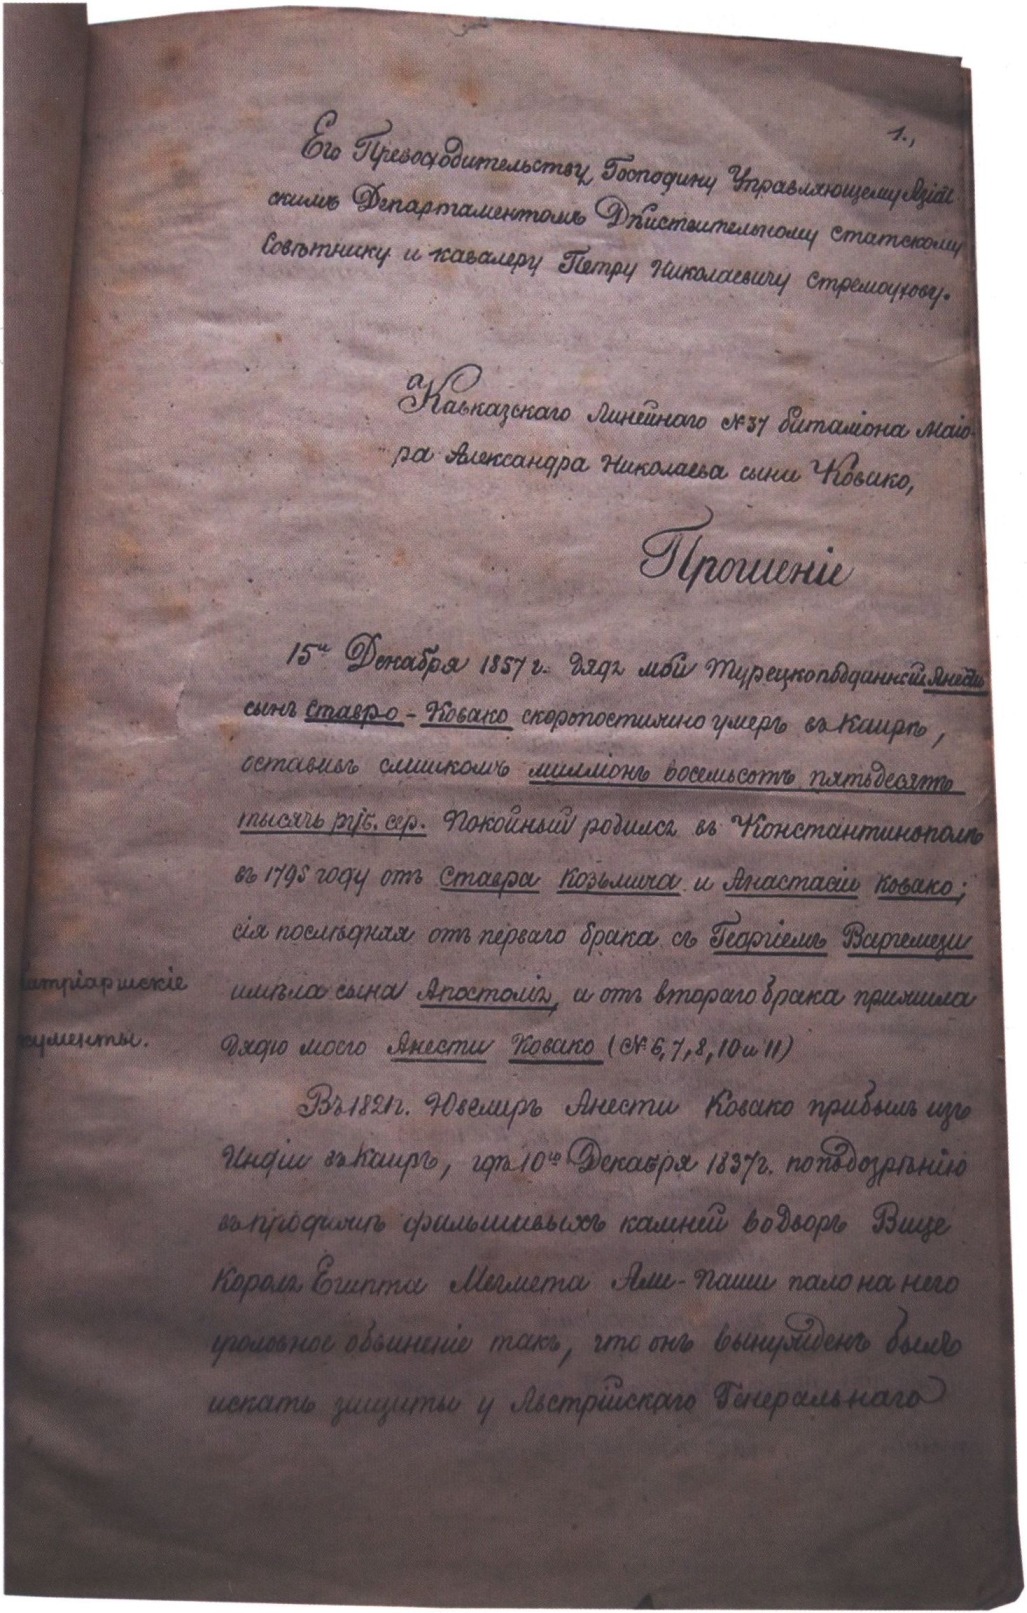 1.,
Его Превосходительству Господину Управляющему Азіат
скимъ Департаментомъ Дѣйствительному Статскому
Совѣтнику и кавалеру Петру Николаевичу Стремоухову.
Кавказскаго Линейнаго №37 баталіона Маіо-
ра Александра Николаева сына Ковако,
Прошеніе
15го Декабря 1857 г. дядя мой Турецкоподданный Анести
сынъ Ставро - Ковако скоропостижно умеръ въ Каирѣ,
оставивъ слишкомъ милліонъ восемьсотъ пятьдесятъ
тысячъ руб. сер. Покойный родился въ Константинополѣ
въ 1795 году отъ Ставра Козьмича и Анастасіи Ковако;
сія послѣдная отъ перваго брака съ Георгіемъ Варгемези
имѣла сына Апостолія, а отъ втораго брака прижила
дядю моего Анести Ковако (№ 6, 7, 8, 10 и 11)
атріаршскіе
кументы.
Въ 1821 г. Ювелиръ Анести Ковако прибылъ изъ
Индіи въ Каиръ, гдѣ 10го Декабря 1837 г. по подозрѣнію
въ продажѣ фальшивыхъ камней во Дворъ Вице
Короля Египта Мегмета Али-Паши пало на него
уголовное обвиненіе такъ, что онъ вынужденъ былъ
искать защиты у Австрійскаго Генеральнаго